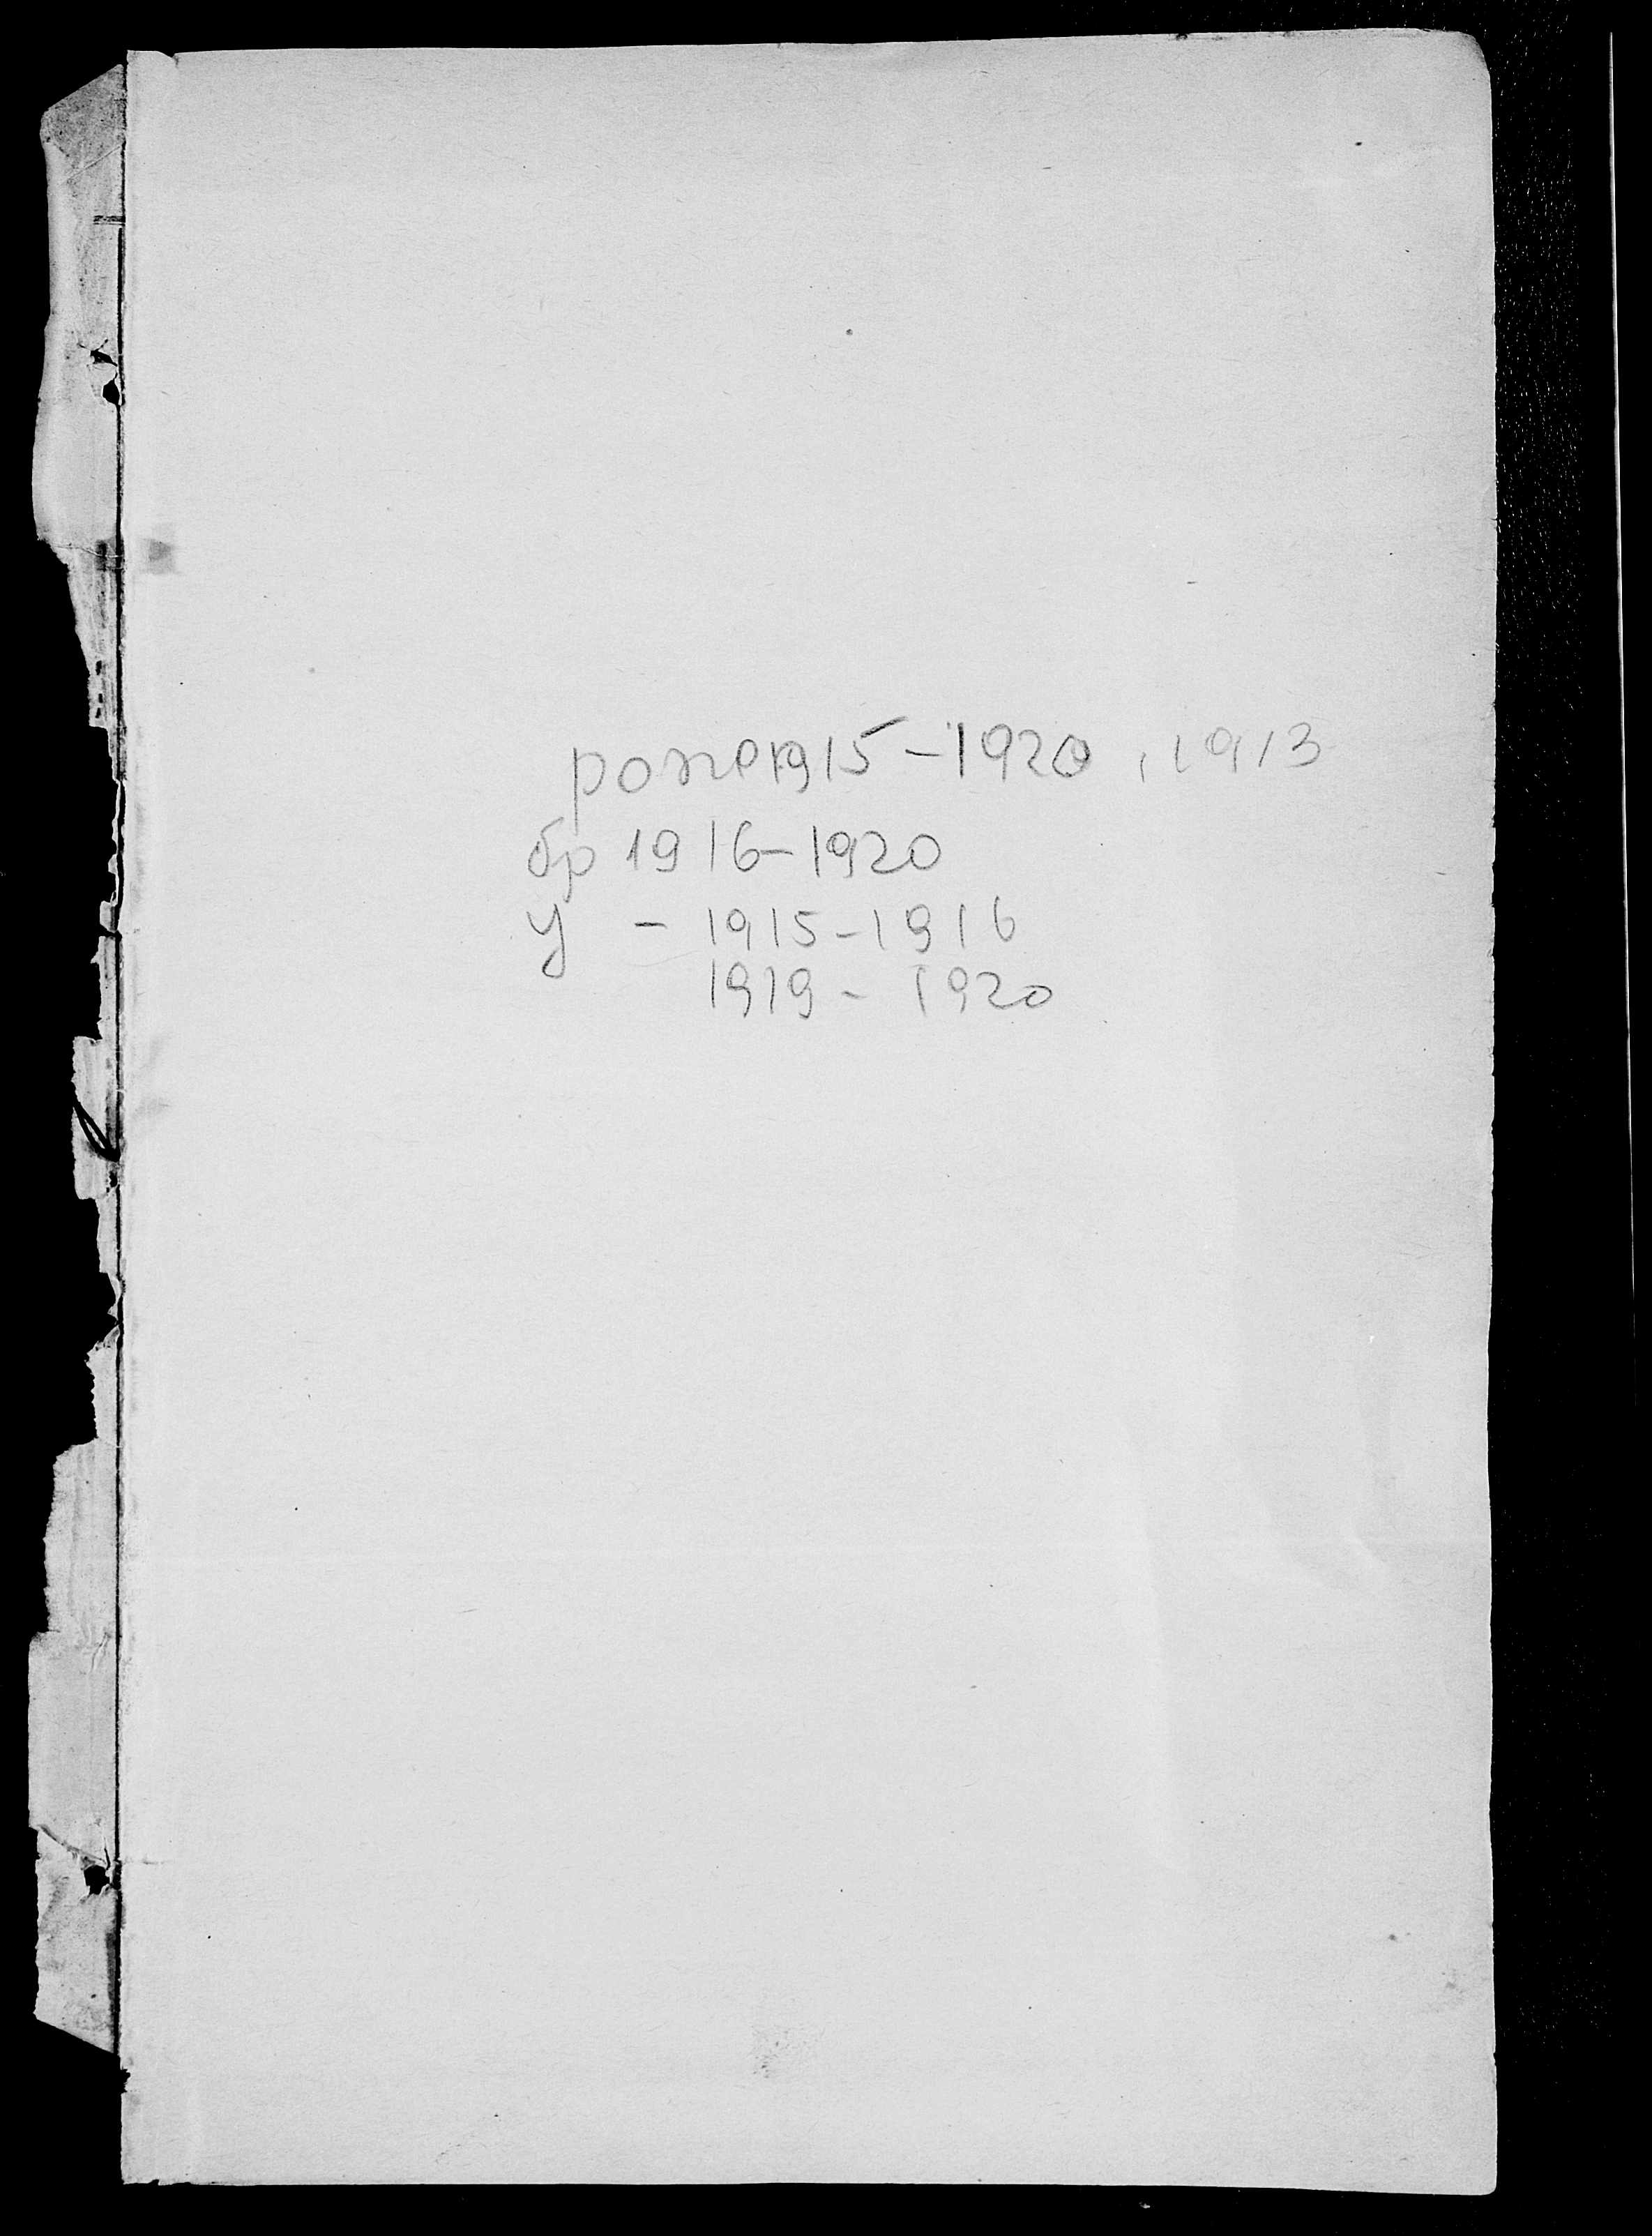 рожд 1915-1920, 1913
бр 1916-1920
у - 1915-1916
1919 - 1920